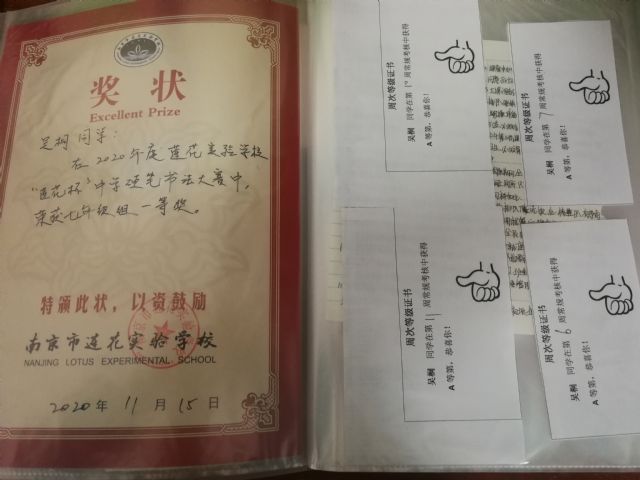 奖状
Excellent Prize
吴桐同学：
在2020年度莲花实验学校
“莲花杯”中学硬笔书法大赛中，
荣获七年级组一等奖。
特颁此状，以资鼓励
南京市莲花实验学校
NANJING LOTUS EXPERIMENTAL SCHOOL
2020年11月15日
周次等级证书
吴桐 同学在第 周常规考核中获得
A 等第，恭喜你！
周次等级证书
吴桐 同学在第 7 周常规考核中获得
A 等第，恭喜你！
周次等级证书
吴桐 同学在第 11 周常规考核中获得
A 等第，恭喜你！
周次等级证书
吴桐 同学在第 6 周常规考核中获得
A 等第，恭喜你！